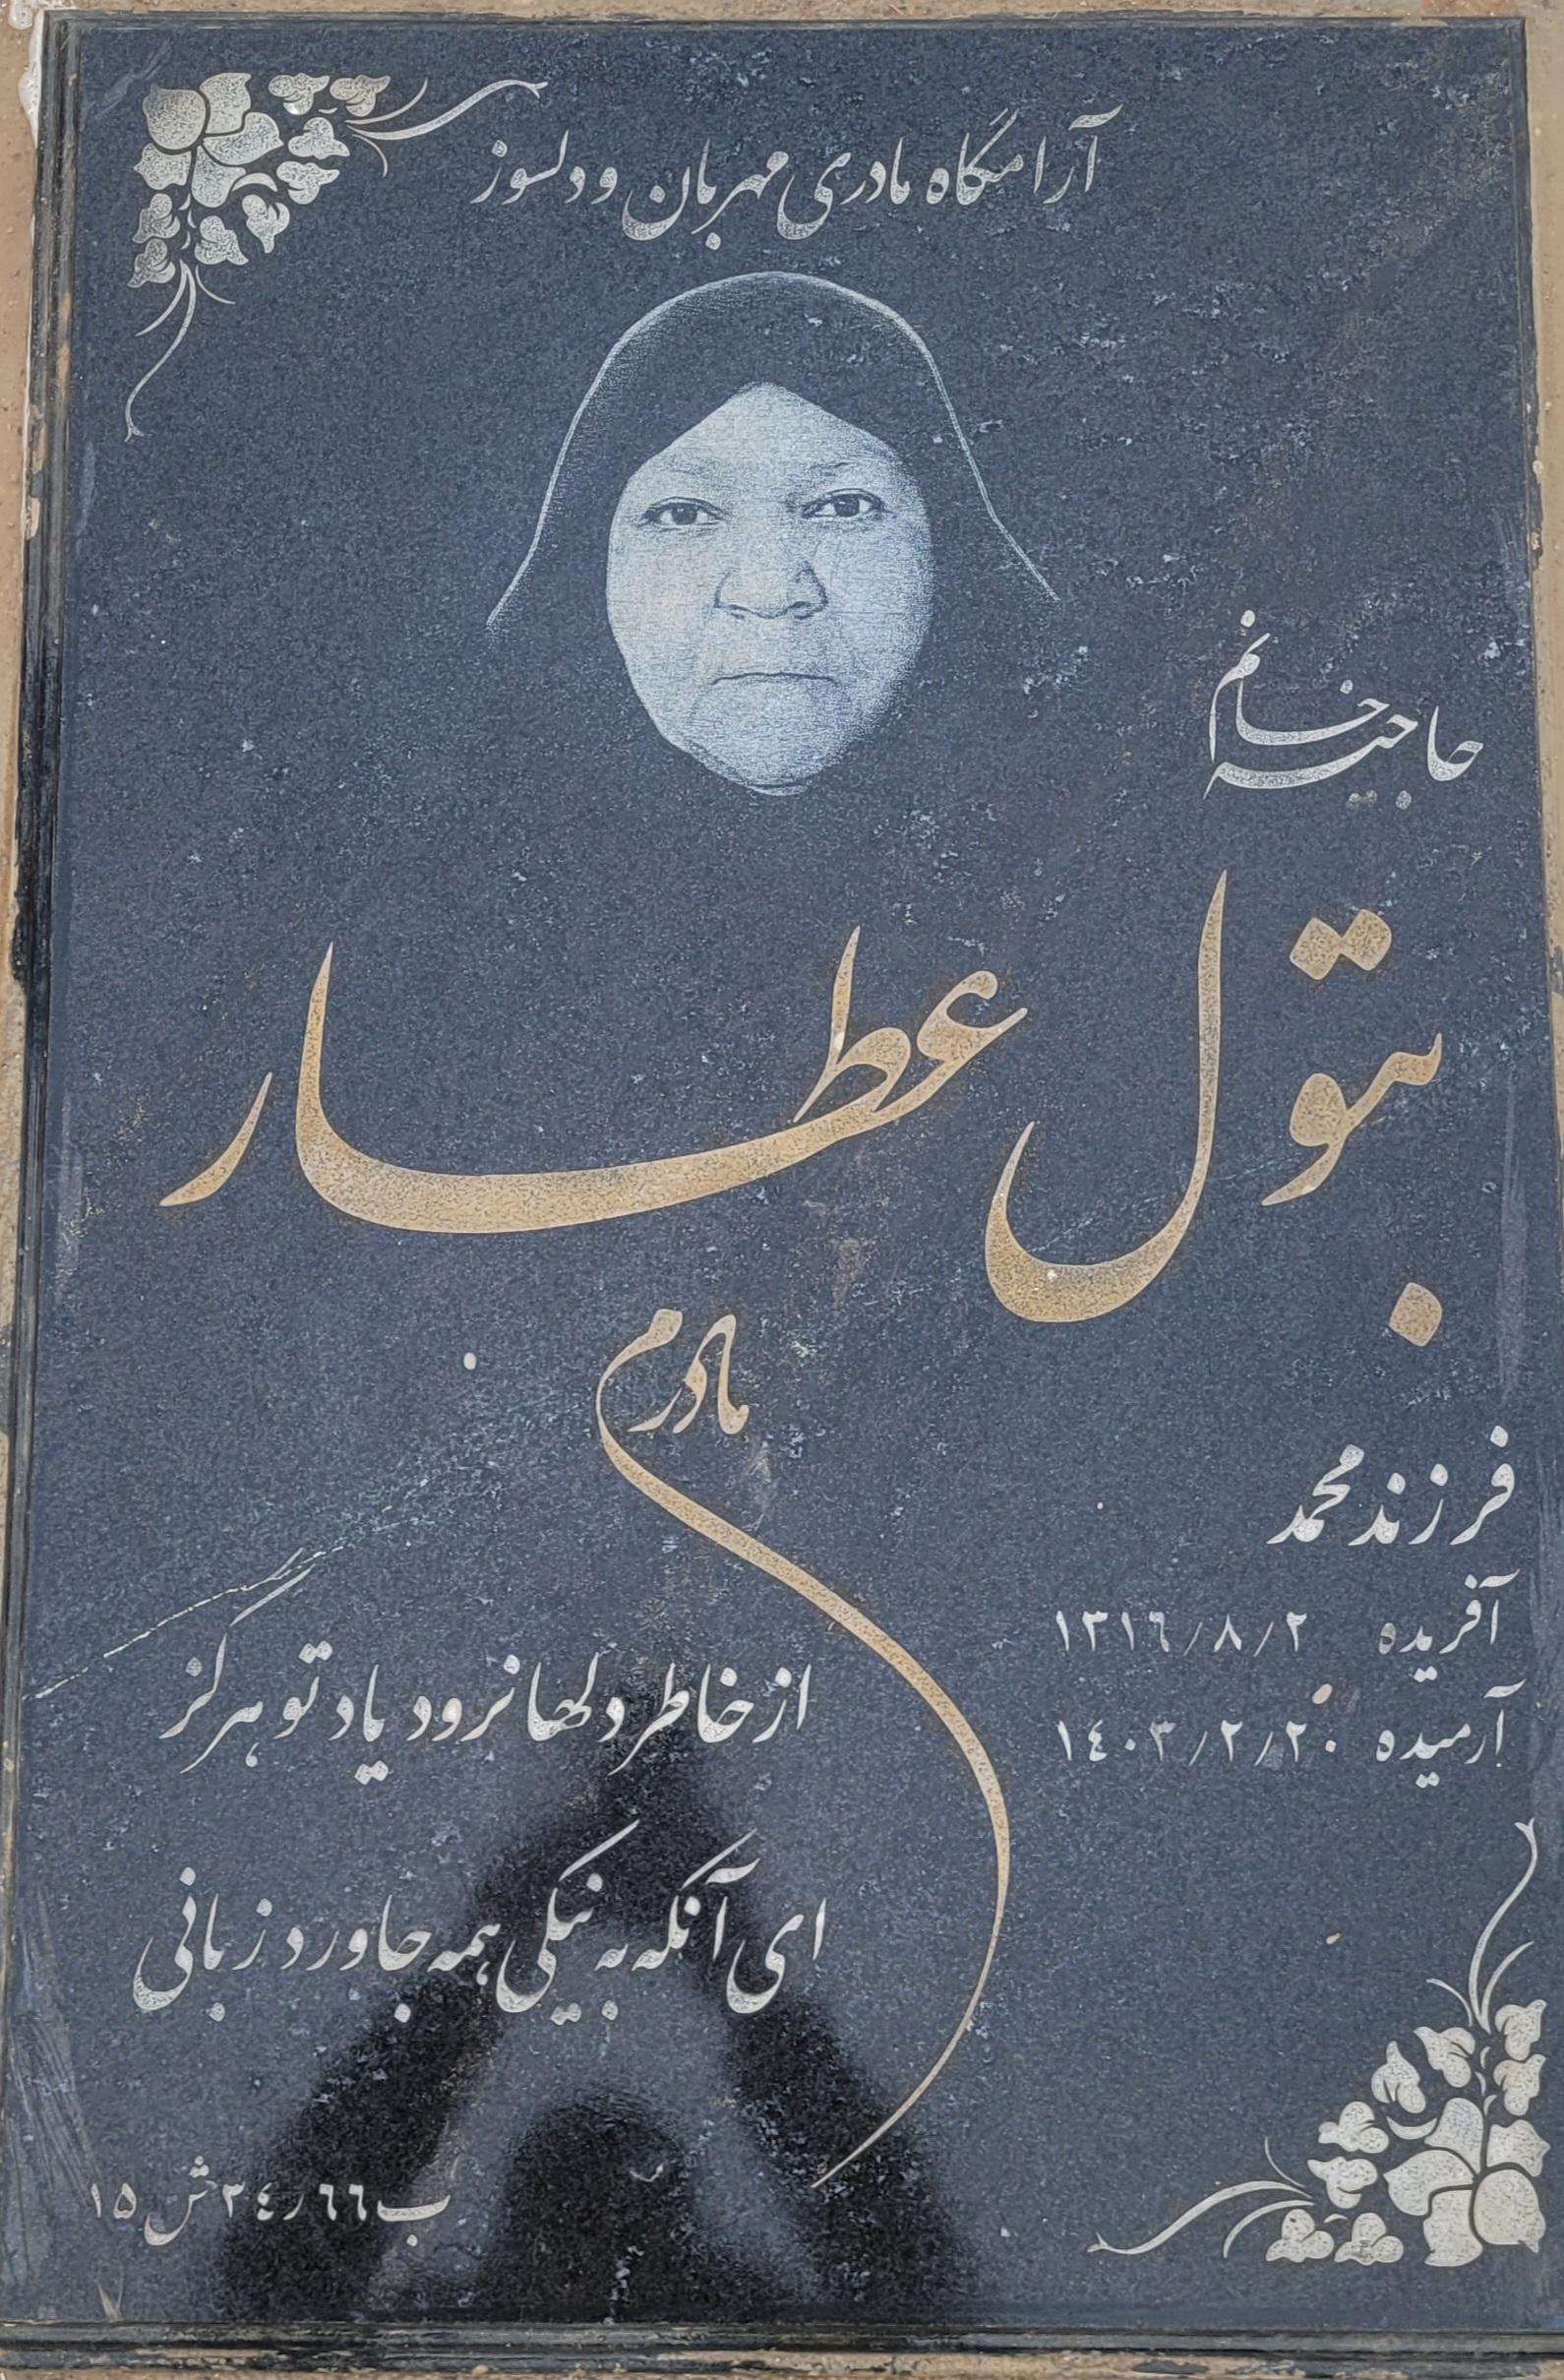 آرامگاه مادری مهربان و دلسوز
حاجیه خانم
بتول عطار
مادرم
فرزند محمد
آفریده ۱۳۱٦/۸/۲
آرمیده ۱٤۰۳/۲/۲۰
از خاطر دلها نرود یاد تو هرگز
ای آنکه به نیکی همه جا ورد زبانی
ب ٦٦ ر ۲٤ ش ۱۵